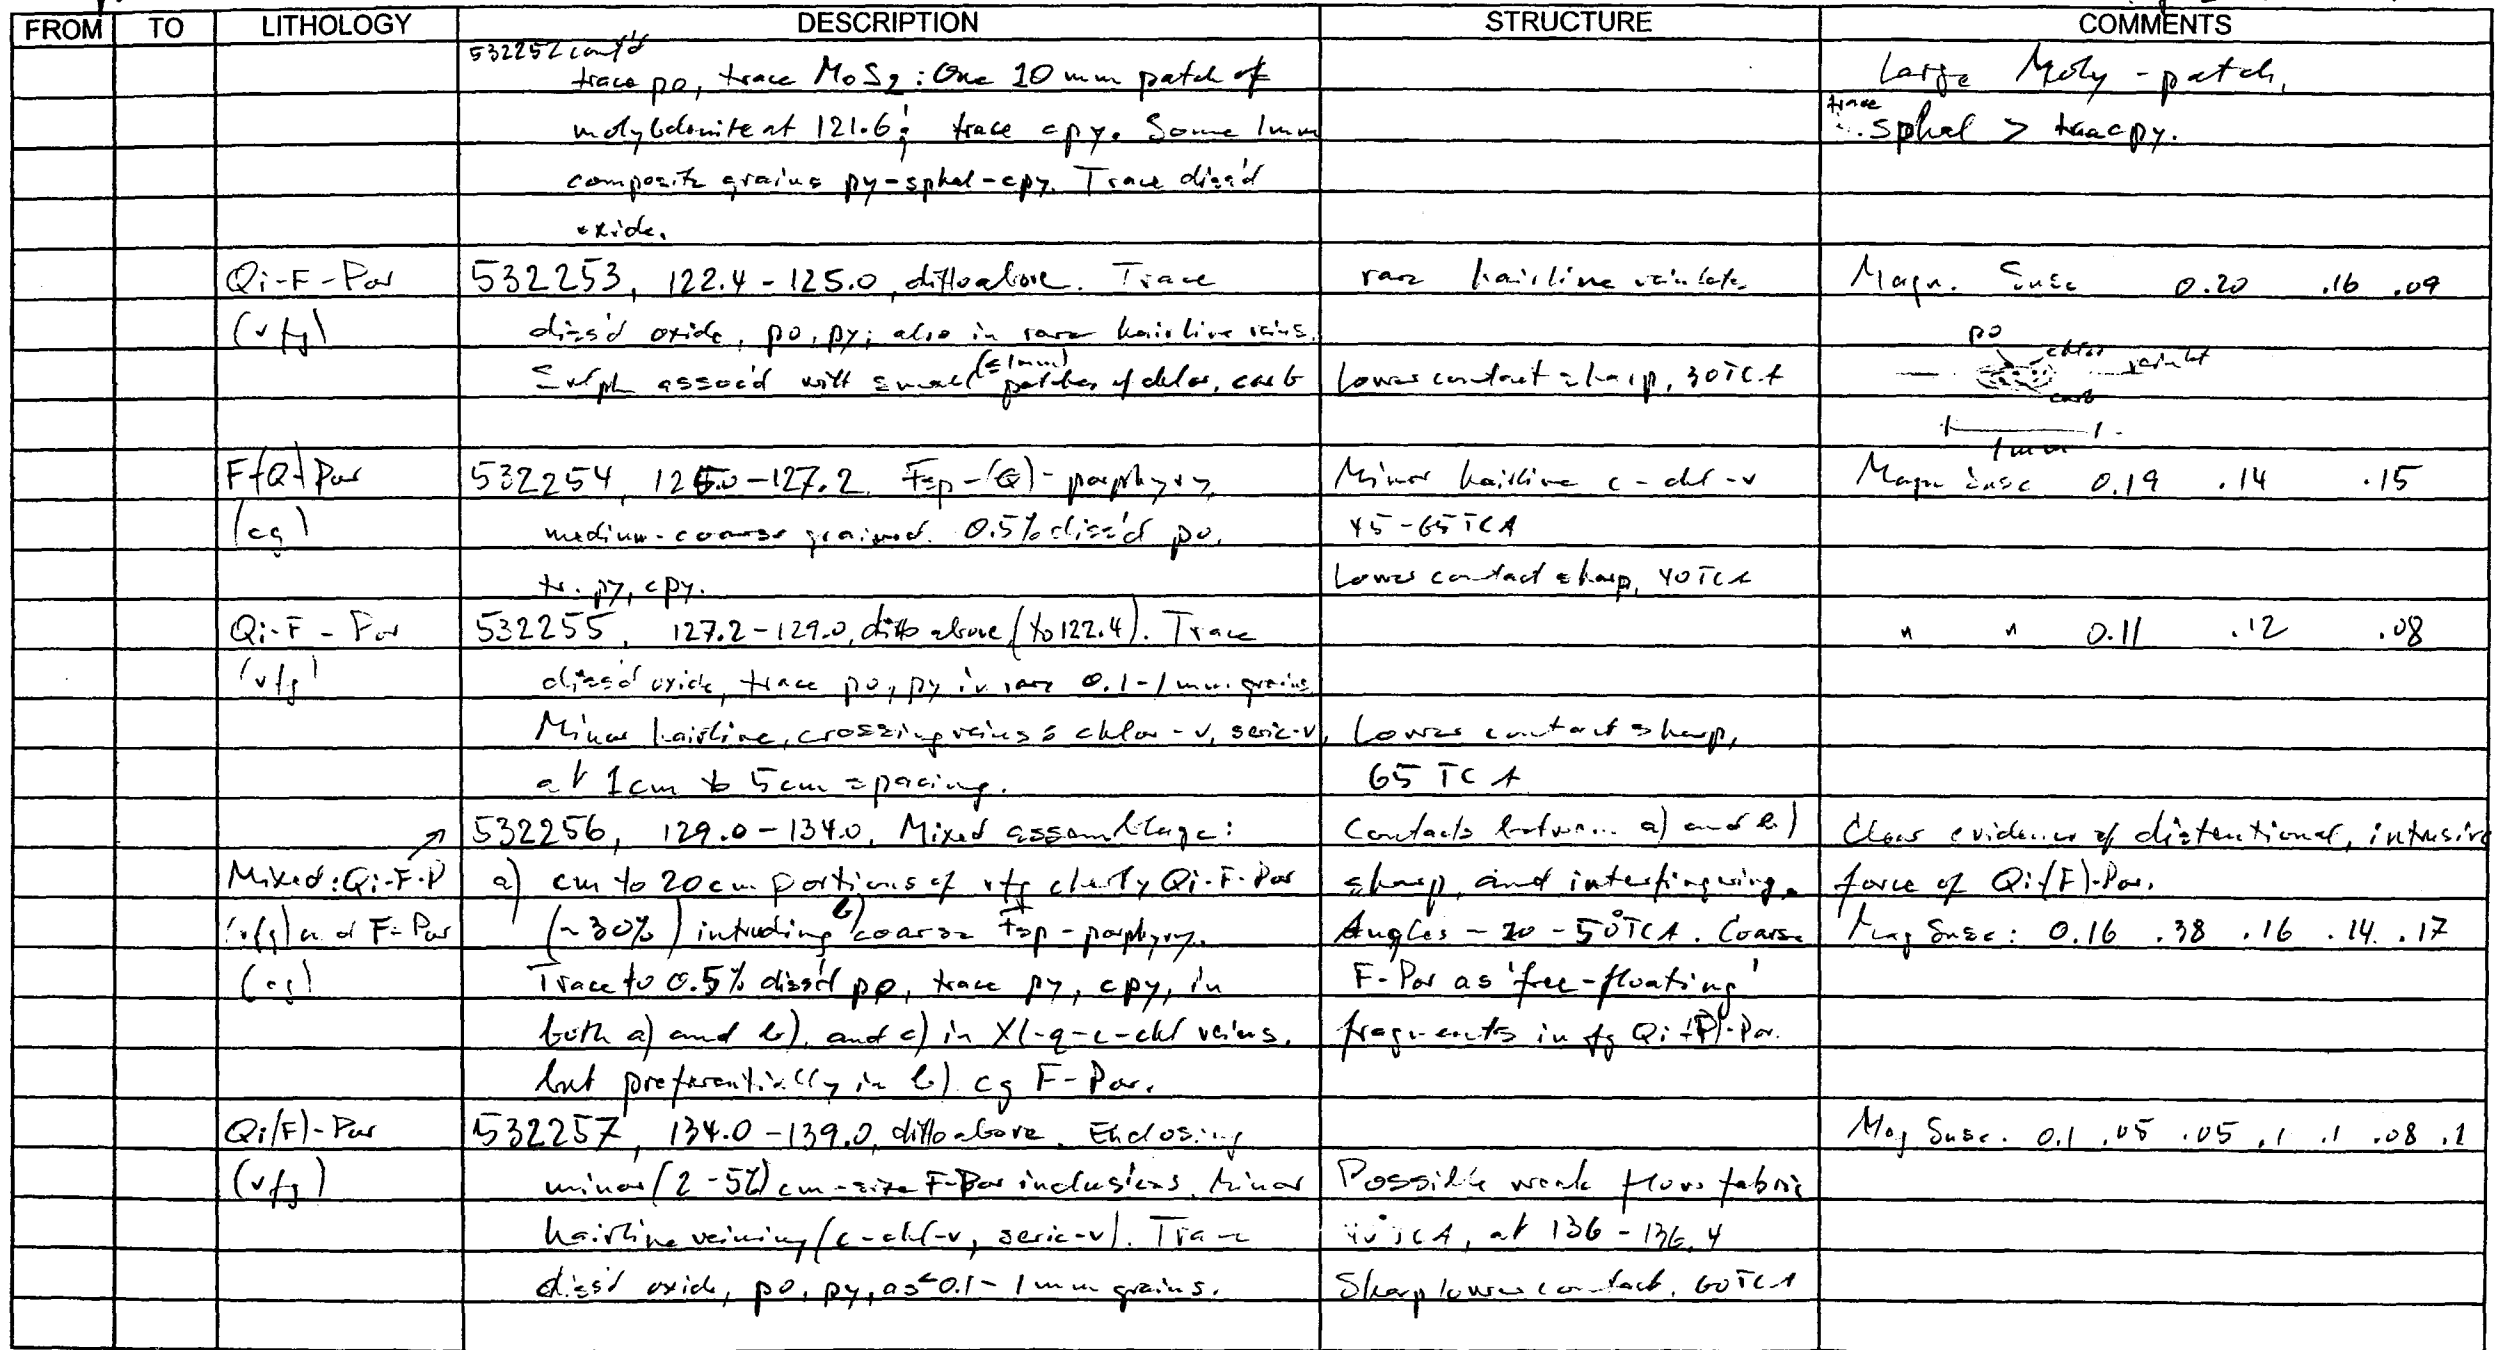 FROM TO LITHOLOGY DESCRIPTION STRUCTURE COMMENTS
532252 cont'd
trace po, trace MoS2: One 10 mm patch of
Large Moly-patch,
molybdenite at 121.6; trace cpy. Some 1mm
trace
sphal > trace cpy.
composite grains py-sphal-cpy. Trace diss'd
oxide.
Qi-F-Por 532253, 122.4-125.0, ditto above. Trace rare hairline veinlets Magn. Susc 0.20 .16 .09
(vfg) diss'd oxide, po, py; also in rare hairline veins.
po chlor veinlet
(≤1mm)
Sulph assoc'd with small patches of chlor, carb Lower contact sharp, 30TCA
carb
1mm
F-(Q)-Por 532254, 125.0-127.2 Fsp-(Q)-porphyry, Minor hairline c-chl-v Magn Susc 0.19 .14 .15
(cg) medium-coarse grained. 0.5% diss'd po, 45-65TCA
tr. py, cpy. Lower contact sharp, 40TCA
Qi-F-Por 532255, 127.2-129.0, ditto above (to 122.4). Trace " " 0.11 .12 .08
(vfg) diss'd oxide, trace po, py in rare 0.1-1mm grains
Minor hairline, crossing veins chlor-v, seric-v, Lower contact sharp,
at 1cm to 5cm spacing. 65 TCA
532256, 129.0-134.0, Mixed assemblage: Contacts between a) and b) Clear evidence of distentional, intrusive
Mixed: Qi-F-P a) cm to 20cm portions of vfg cherty Qi-F-Por sharp, and interfingering. force of Qi(F)-Por.
(vfg) and F-Por (~30%) intruding b) coarse Fsp-porphyry. Angles ~20-50°TCA. Coarse Mag Susc: 0.16 .38 .16 .14 .17
(cg) Trace to 0.5% diss'd po, trace py, cpy, in F-Por as 'free-floating'
both a) and b), and c) in Xl-q-c-chl veins, fragments in fg Qi-(F)-Por.
but preferentially in b) cg F-Por.
Qi(F)-Por 532257, 134.0-139.0, ditto above. Enclosing Mag Susc. 0.1 .05 .05 .1 .1 .08 .1
(vfg) minor (2-5%) cm-size F-Por inclusions. Minor Possible weak flow fabric
hairline veining (c-chl-v, seric-v). Trace 40°TCA, at 136-136.4
diss'd oxide, po, py, as <0.1-1mm grains. Sharp lower contact, 60TCA